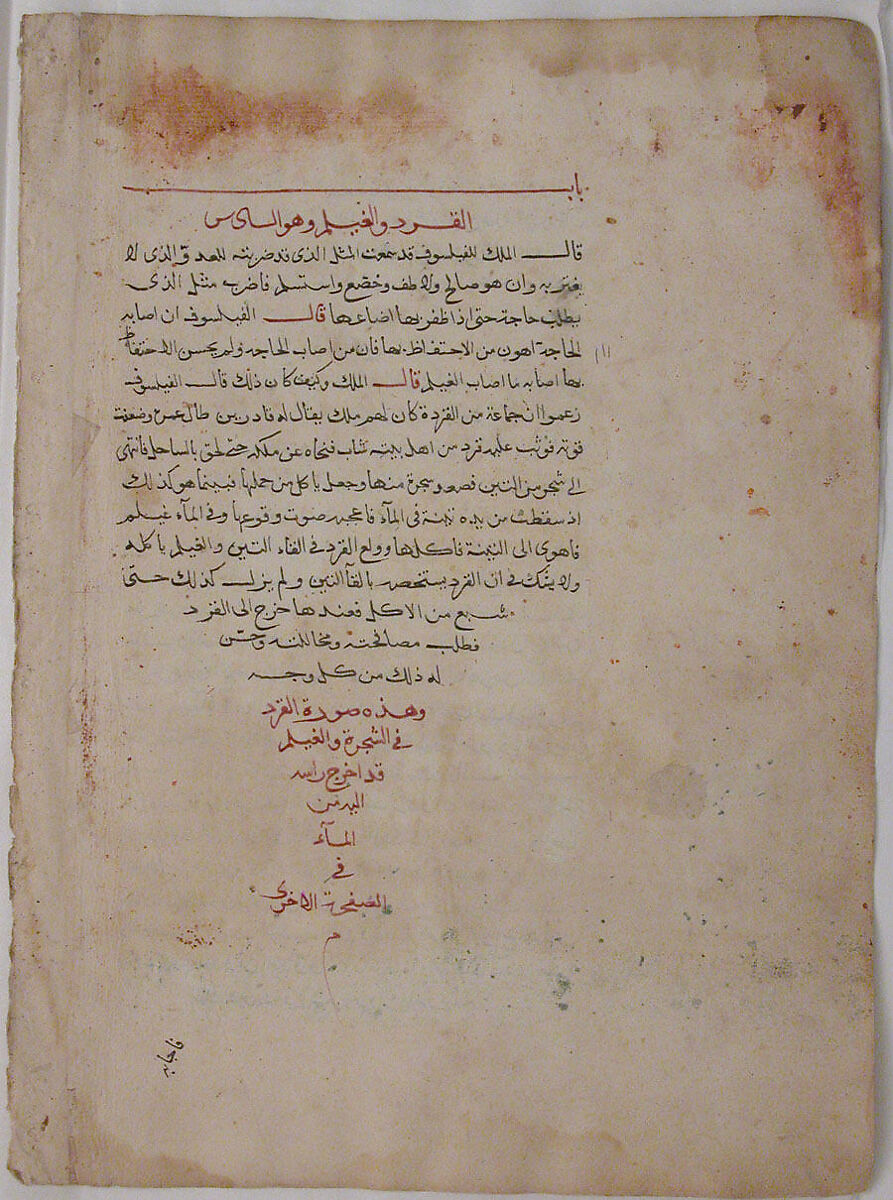 باب
القرد والغيلم وهو السادس
قال الملك للفيلسوف قد سمعت المثل الذى قد ضربته للعدو الذى لا
يغتر به وان هو صالح ولاطف وخضع واستسلم فاضرب مثل الذى
يطلب حاجة حتى اذا ظفر بها اضاعها قال الفيلسوف ان اصابه
الحاجة اهون من الاحتفاظ بها فان من اصاب الحاجه ولم يحسن الاحتفاظ
بها اصابه ما اصاب الغيلم قال الملك وكيف كان ذلك قال الفيلسوف
زعموا ان جماعة من القردة كان لهم ملك يقال له قادرين طال عمره وضعفت
قوته فوثب عليه قرد من اهل بيته شاب فنحاه عن ملكه حتى لحق بالساحل فانتهى
الى شجر من التين فصعد شجرة منها وجعل ياكل من حملها فبينما هو كذلك
اذ سقطت من يده تينة فى المآء فاعجبه صوت وقوعها وفى المآء غيلم
فاهوى الى التينة فاكلها وولع القرد فى القاء التين والغيلم ياكله
ولا يشك فى ان القرد يستحضر بالقآ التين ولم يزل كذلك حتى
شبع من الاكل فعندها خرج الى القرد
فطلب مصافحته ومخاللته وحسن
له ذلك من كل وجه
وهذه صورة القرد
فى الشجرة والغيلم
قد اخرج راسه
اليه من
المآء
فى
الصفحة الاخرى
م